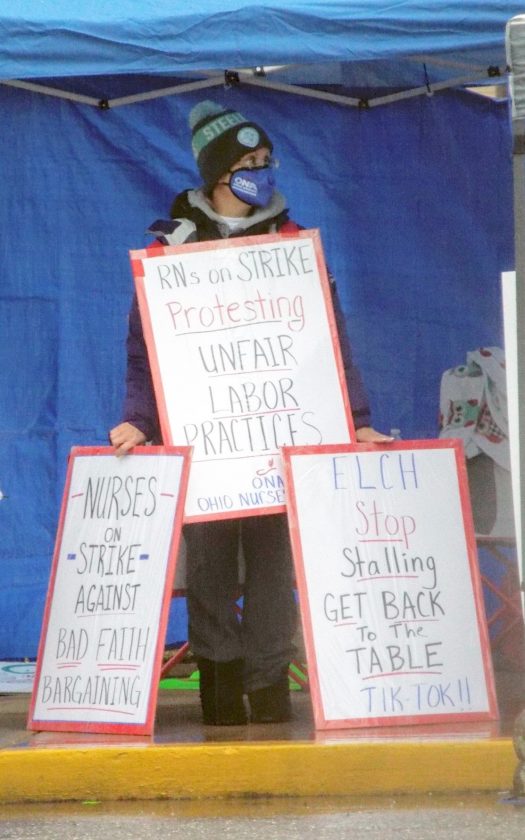 ONA
RNs on STRIKE
Protesting
UNFAIR
LABOR
PRACTICES
ONA
OHIO NURSE
-NURSES-
ON
-STRIKE-
AGAINST
BAD FAITH
BARGAINING
ELCH
Stop
Stalling
GET BACK
To The
TABLE
TIK-TOK!!